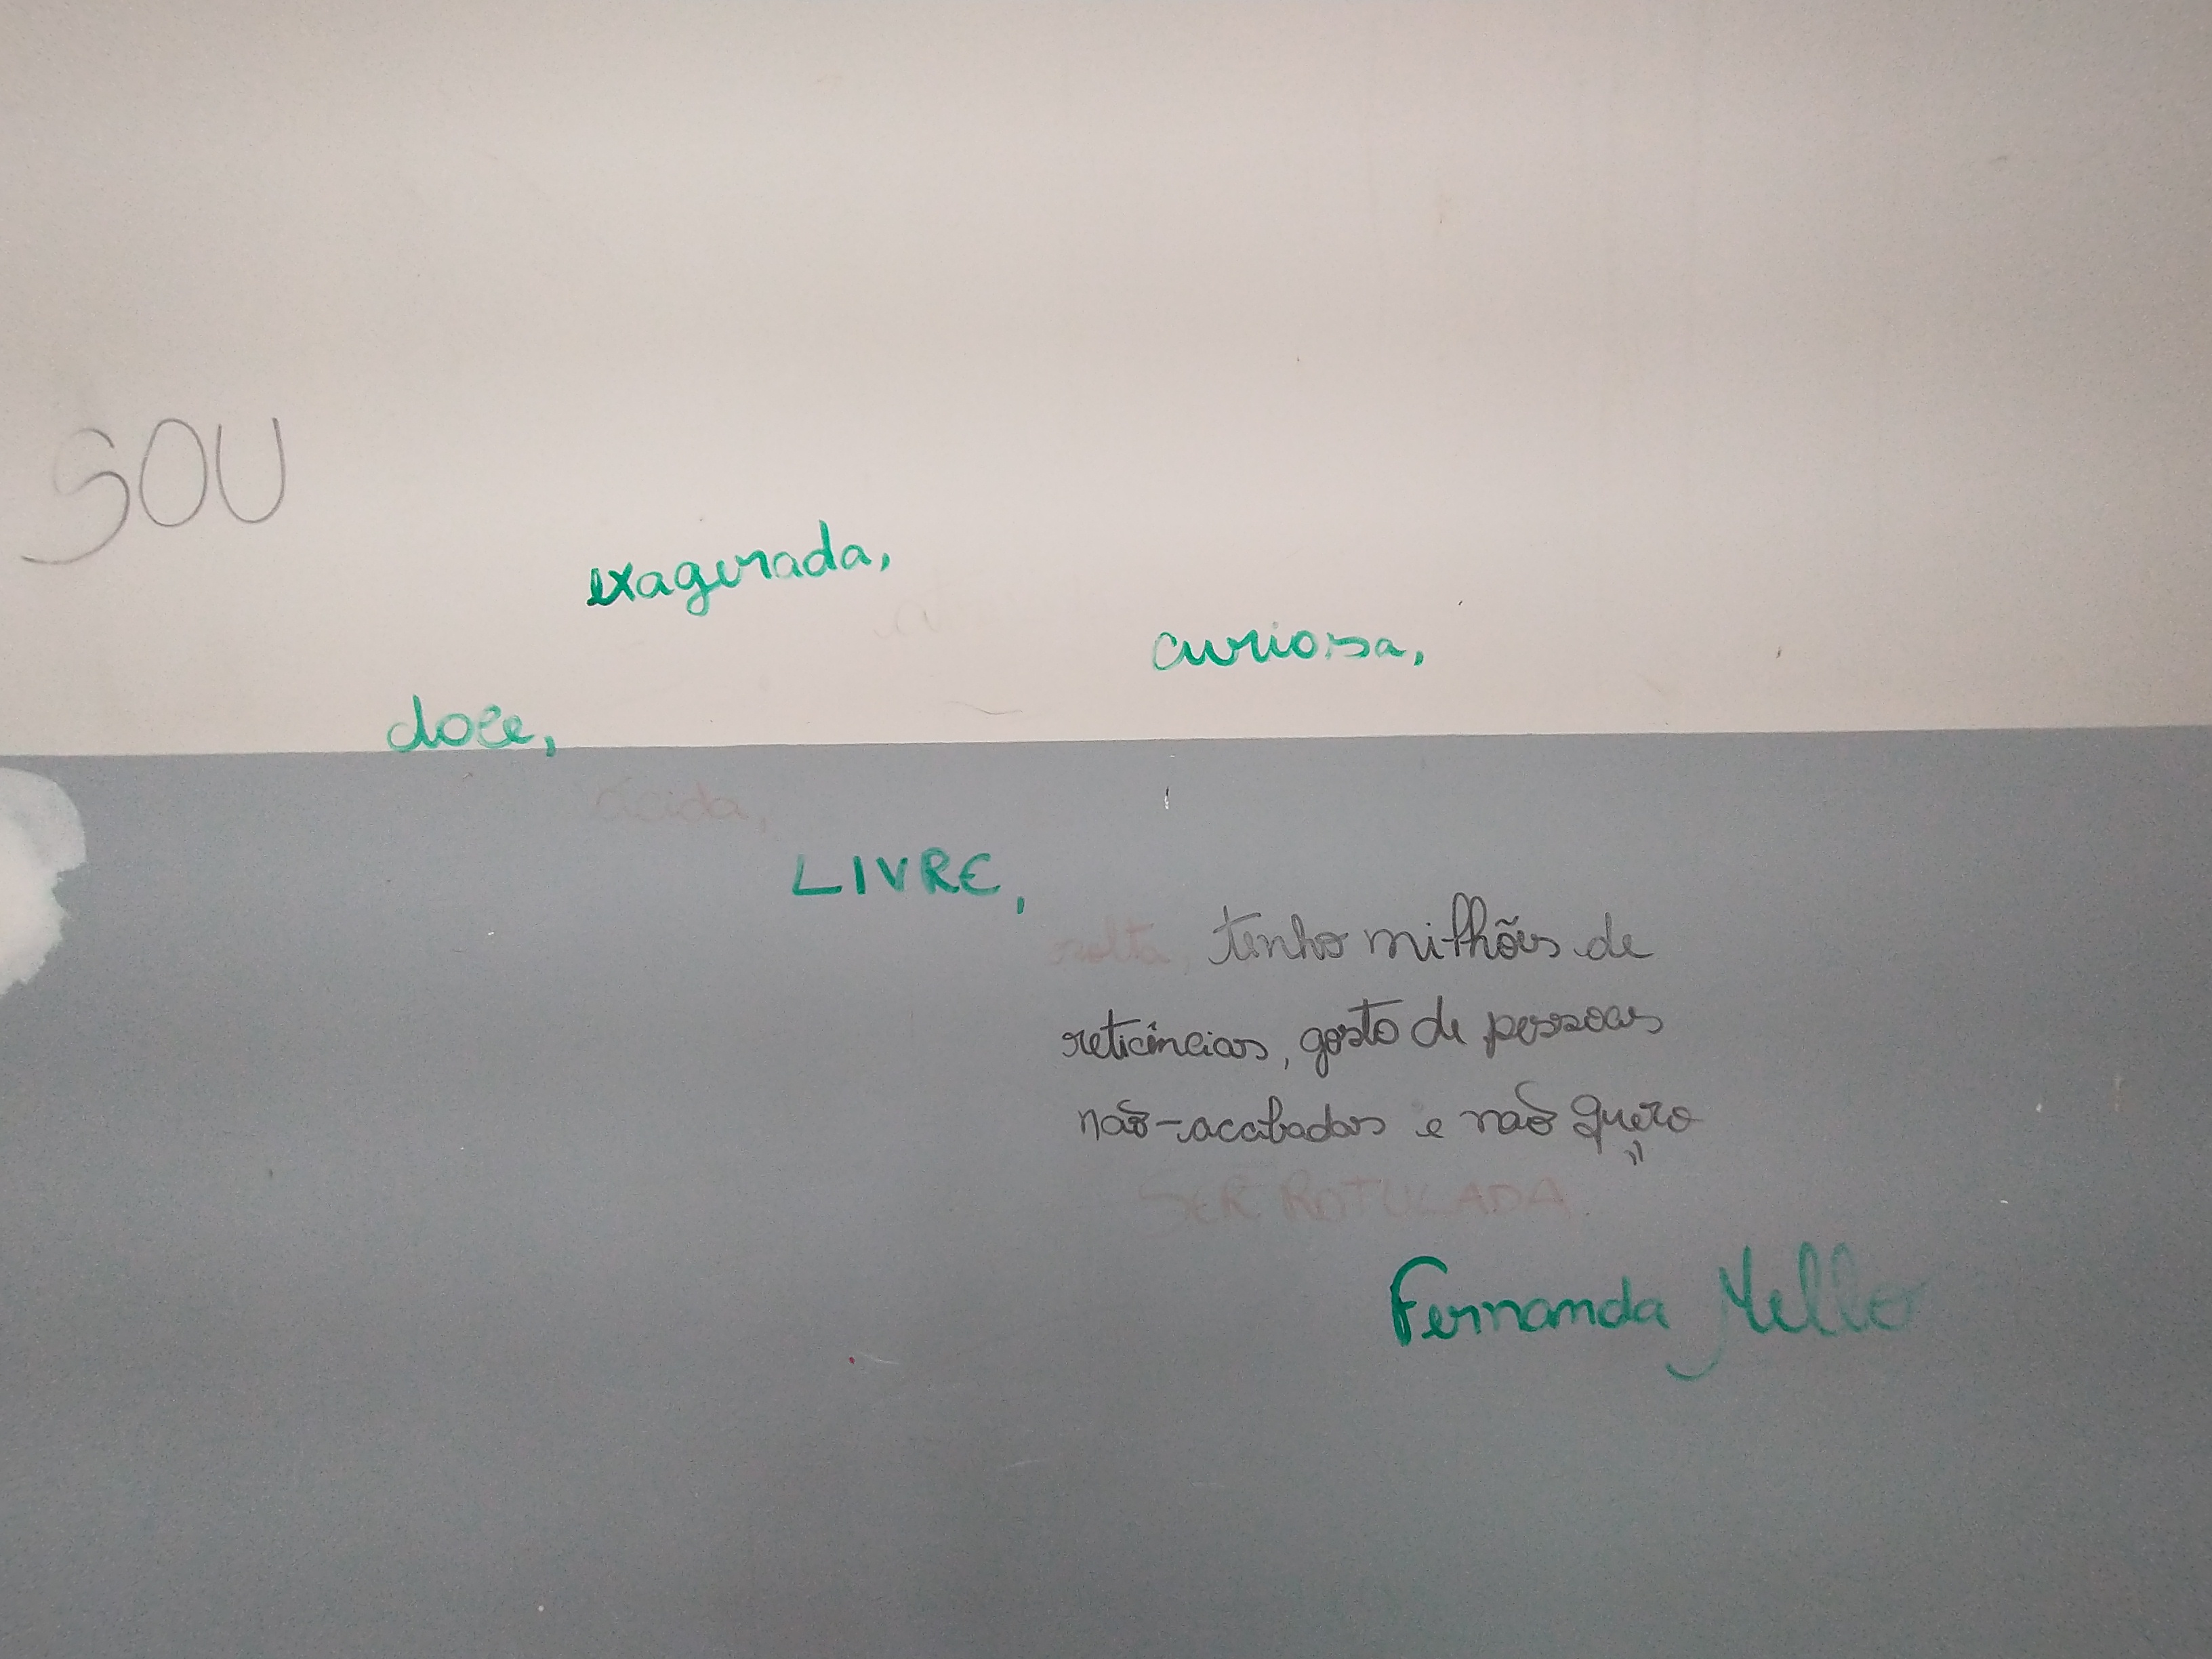 SOU
exagerada,
curiosa,
doce,
ácida,
LIVRE,
solta, tenho milhões de
reticências, gosto de pessoas
não-acabadas e não quero
SER ROTULADA
Fernanda Mello